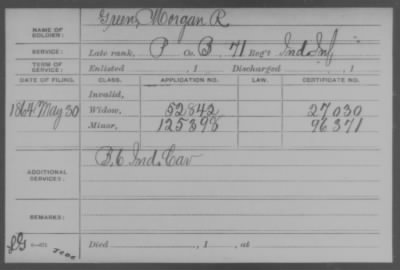 NAME OF SOLDIER: Green, Morgan R
SERVICE: Late rank, P Co. B, 71 Reg't Ind. Inf
TERM OF SERVICE: Enlisted , 1 Discharged , 1
DATE OF FILING. CLASS. APPLICATION NO. LAW. CERTIFICATE NO.
Invalid,
1864 May 30 Widow, 52842 27030
Minor, 125898 96371
ADDITIONAL SERVICES: B, 6 Ind. Cav
REMARKS:
Died , 1 , at